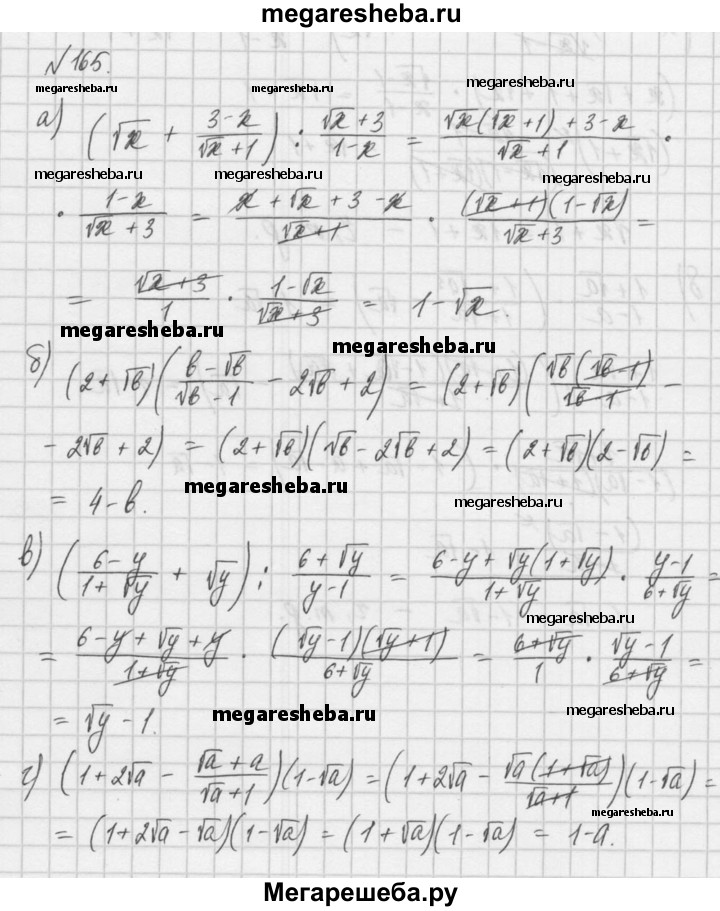 megaresheba.ru
№165.
megaresheba.ru megaresheba.ru megaresheba.ru
а) (√x + (3-x)/(√x+1)) : (√x+3)/(1-x) = (√x(√x+1)+3-x)/(√x+1) ·
megaresheba.ru megaresheba.ru megaresheba.ru
· (1-x)/(√x+3) = (x+√x+3-x)/(√x+1) · ((√x+1)(1-√x))/(√x+3) =
= (√x+3)/1 · (1-√x)/(√x+3) = 1-√x.
megaresheba.ru megaresheba.ru
б) (2+√b)((b-√b)/(√b-1) - 2√b+2) = (2+√b)((√b(√b-1))/(√b-1) -
- 2√b+2) = (2+√b)(√b-2√b+2) = (2+√b)(2-√b) =
megaresheba.ru megaresheba.ru
= 4-b.
в) ((6-y)/(1+√y) + √y) : (6+√y)/(y-1) = (6-y+√y(1+√y))/(1+√y) · (y-1)/(6+√y) =
megaresheba.ru
= (6-y+√y+y)/(1+√y) · ((√y-1)(√y+1))/(6+√y) = (6+√y)/1 · (√y-1)/(6+√y) =
= √y-1.
megaresheba.ru megaresheba.ru
г) (1+2√a - (√a+a)/(√a+1))(1-√a) = (1+2√a - (√a(1+√a))/(√a+1))(1-√a) =
megaresheba.ru
= (1+2√a-√a)(1-√a) = (1+√a)(1-√a) = 1-a.
Мегарешеба.ру